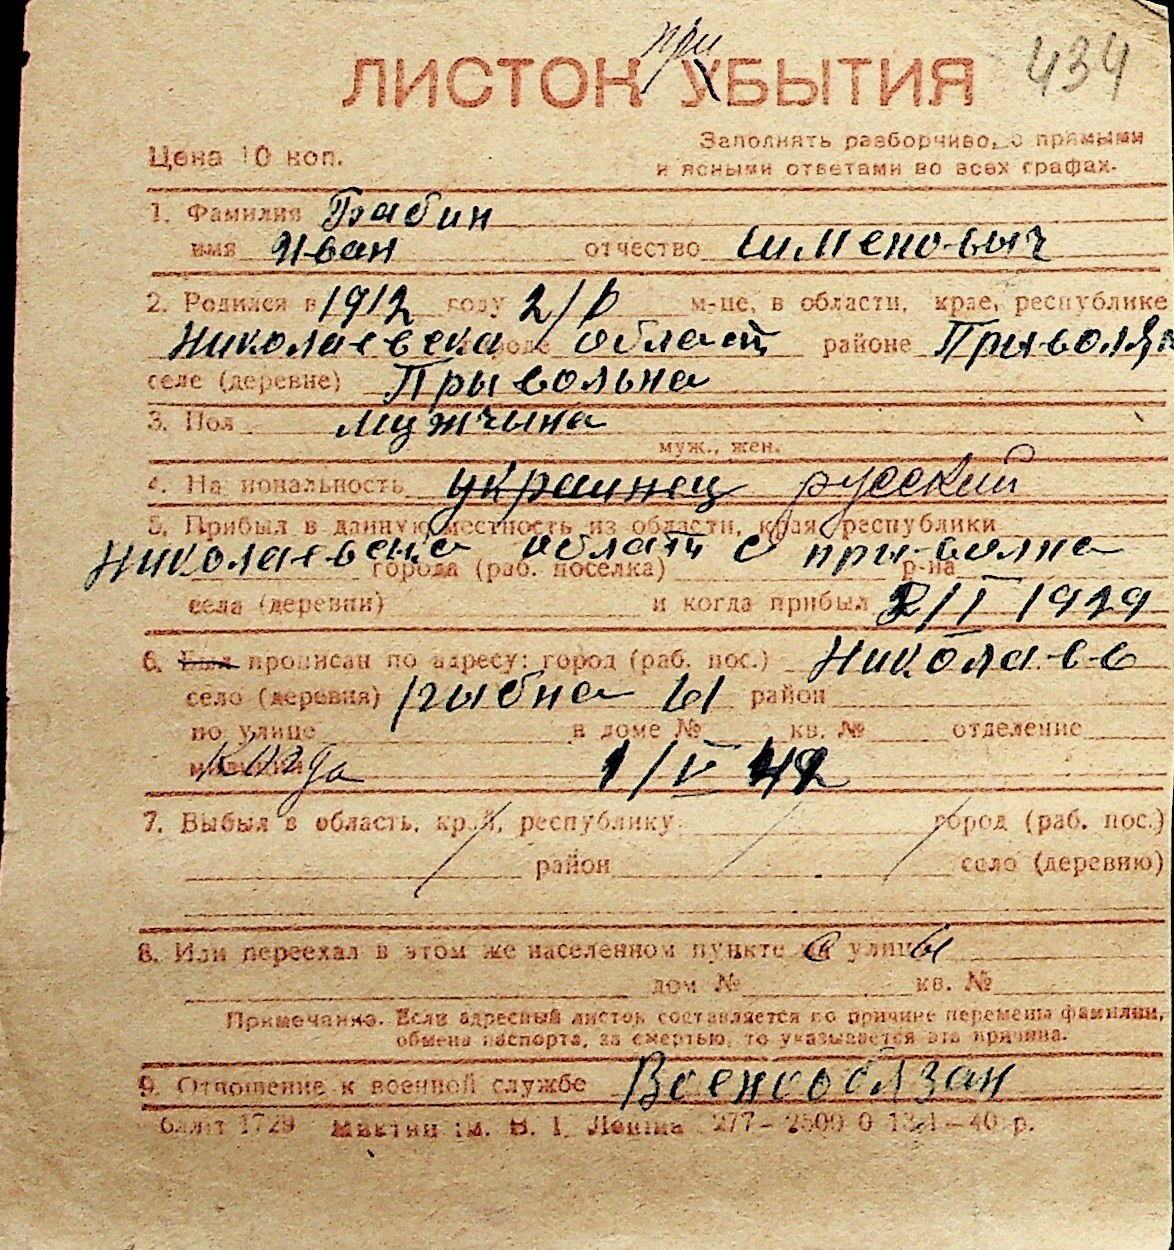 при
434
ЛИСТОК УБЫТИЯ
Цена 10 коп.
Заполнять разборчиво, с прямыми
и ясными ответами во всех графах.
1. Фамилия Бабин
имя Иван отчество Сименовыч
2. Родился в 1912 году 2/V м-це, в области, крае, республике
Николаевска городе област районе Прывольн
селе (деревне) Прывольна
3. Пол мужчына
муж., жен.
4. Национальность украинец русский
5. Прибыл в данную местность из области, края, республики
Николаевска област с прыволна
города (раб. поселка) р-на
села (деревни) и когда прибыл 2/I 1929
6. Был прописан по адресу: город (раб. пос.) Николаев
село (деревня) рыбна 61 район
по улице в доме № кв. № отделение
милиции Когда 1/V 42
7. Выбыл в область, край, республику город (раб. пос.)
район село (деревню)
8. Или переехал в этом же населенном пункте с улицы
дом № кв. №
Примечание. Если адресный листок составляется по причине перемены фамилии,
обмена паспорта, за смертью, то указывается эта причина.
9. Отношение к военной службе Военообязан
1729 ім. В. І. Леніна 277—2500 0 13.4—40 р.